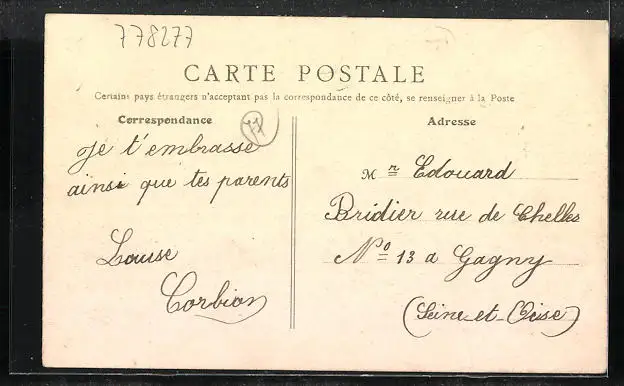 778277
77
CARTE POSTALE
Certains pays étrangers n'acceptant pas la correspondance de ce côté, se renseigner à la Poste
Correspondance
Je t'embrasse
ainsi que tes parents
Louise
Corbion
Adresse
Mr Edouard
Bridier rue de Chelles
No 13 a Gagny
(Seine-et-Oise)